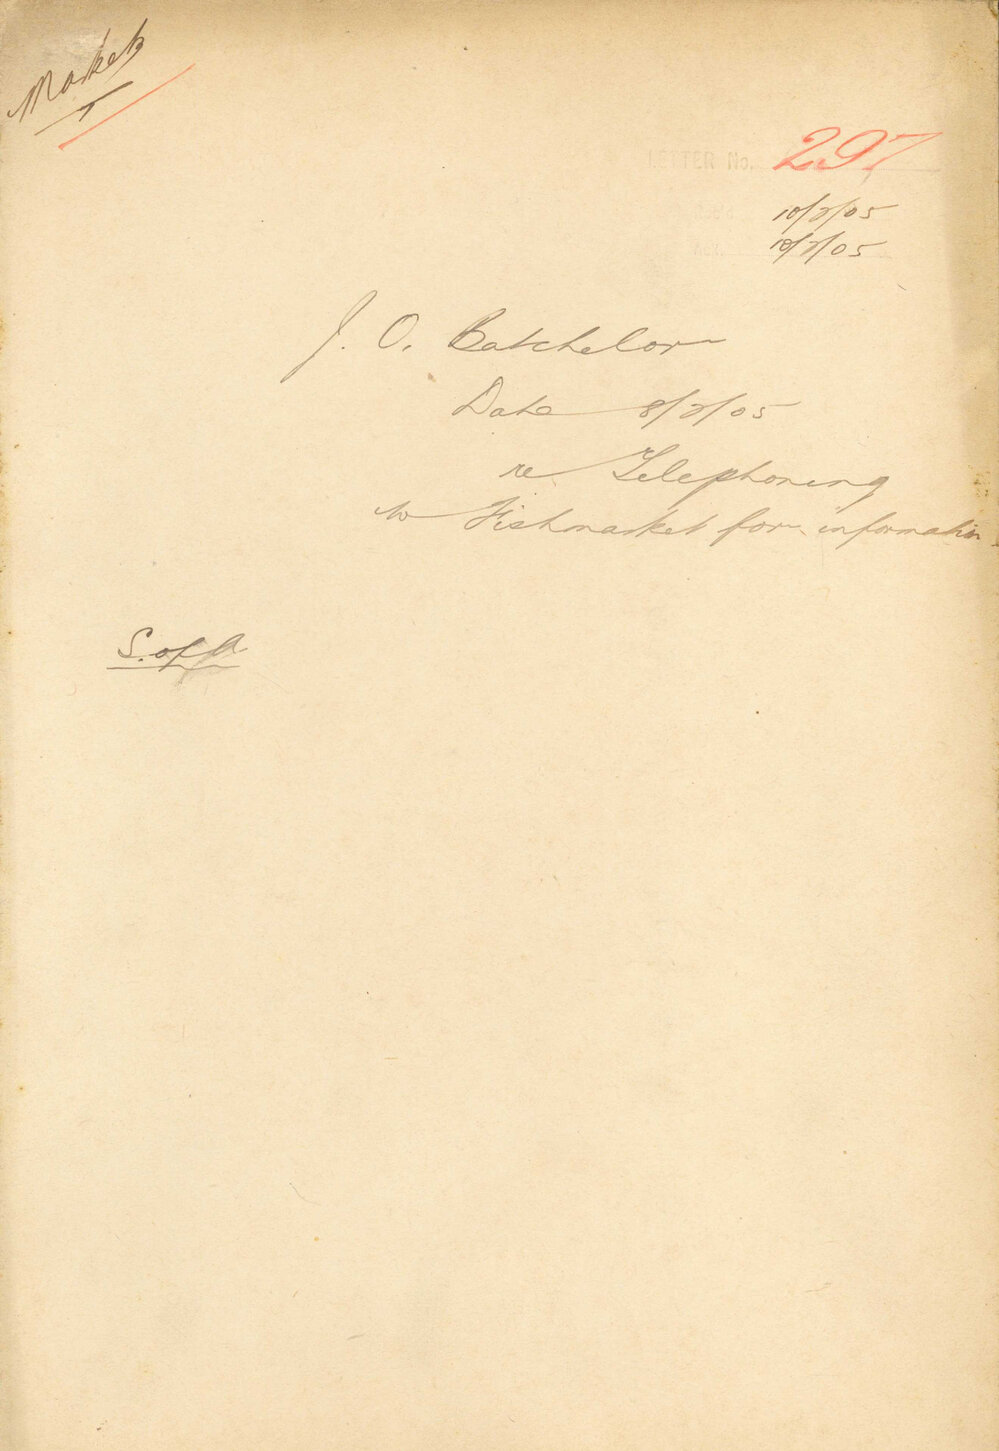 Markets
LETTER No. 297
10/2/05
Ack. 10/2/05
J. O. Batchelor
Date 8/2/05
re Telephoning
to Fishmarket for information
S. of A